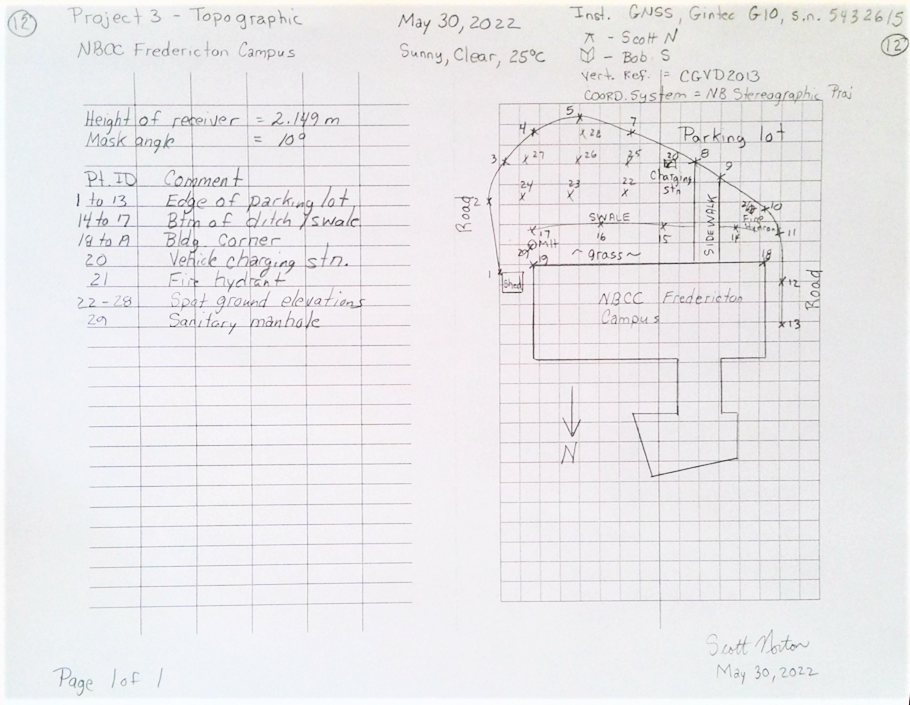 12
Project 3 - Topographic
NBCC Fredericton Campus
May 30, 2022
Sunny, Clear, 25°C
Inst. GNSS, Gintec G10, s.n. 5432615
⊼ - Scott N
- Bob S
Vert. Ref. = CGVD2013
COORD. System = NB Stereographic Proj
12
Height of receiver = 2.149 m
Mask angle = 10°
Pt. ID Comment
1 to 13 Edge of parking lot
14 to 17 Btm of ditch /swale
18 to 19 Bldg corner
20 Vehicle charging stn.
21 Fire hydrant
22-28 Spot ground elevations
29 Sanitary manhole
5
4 28 7 Parking lot
3 27 26 25 20 8
Charging
stn
9
24 23 22
2 10
Road
SWALE
SIDEWALK
Fire
Hydrant
17 16 15 14 11
29 MH
19 ~grass~ 18
1
Shed
12
Road
13
NBCC Fredericton
Campus
N
Scott Norton
May 30, 2022
Page 1 of 1